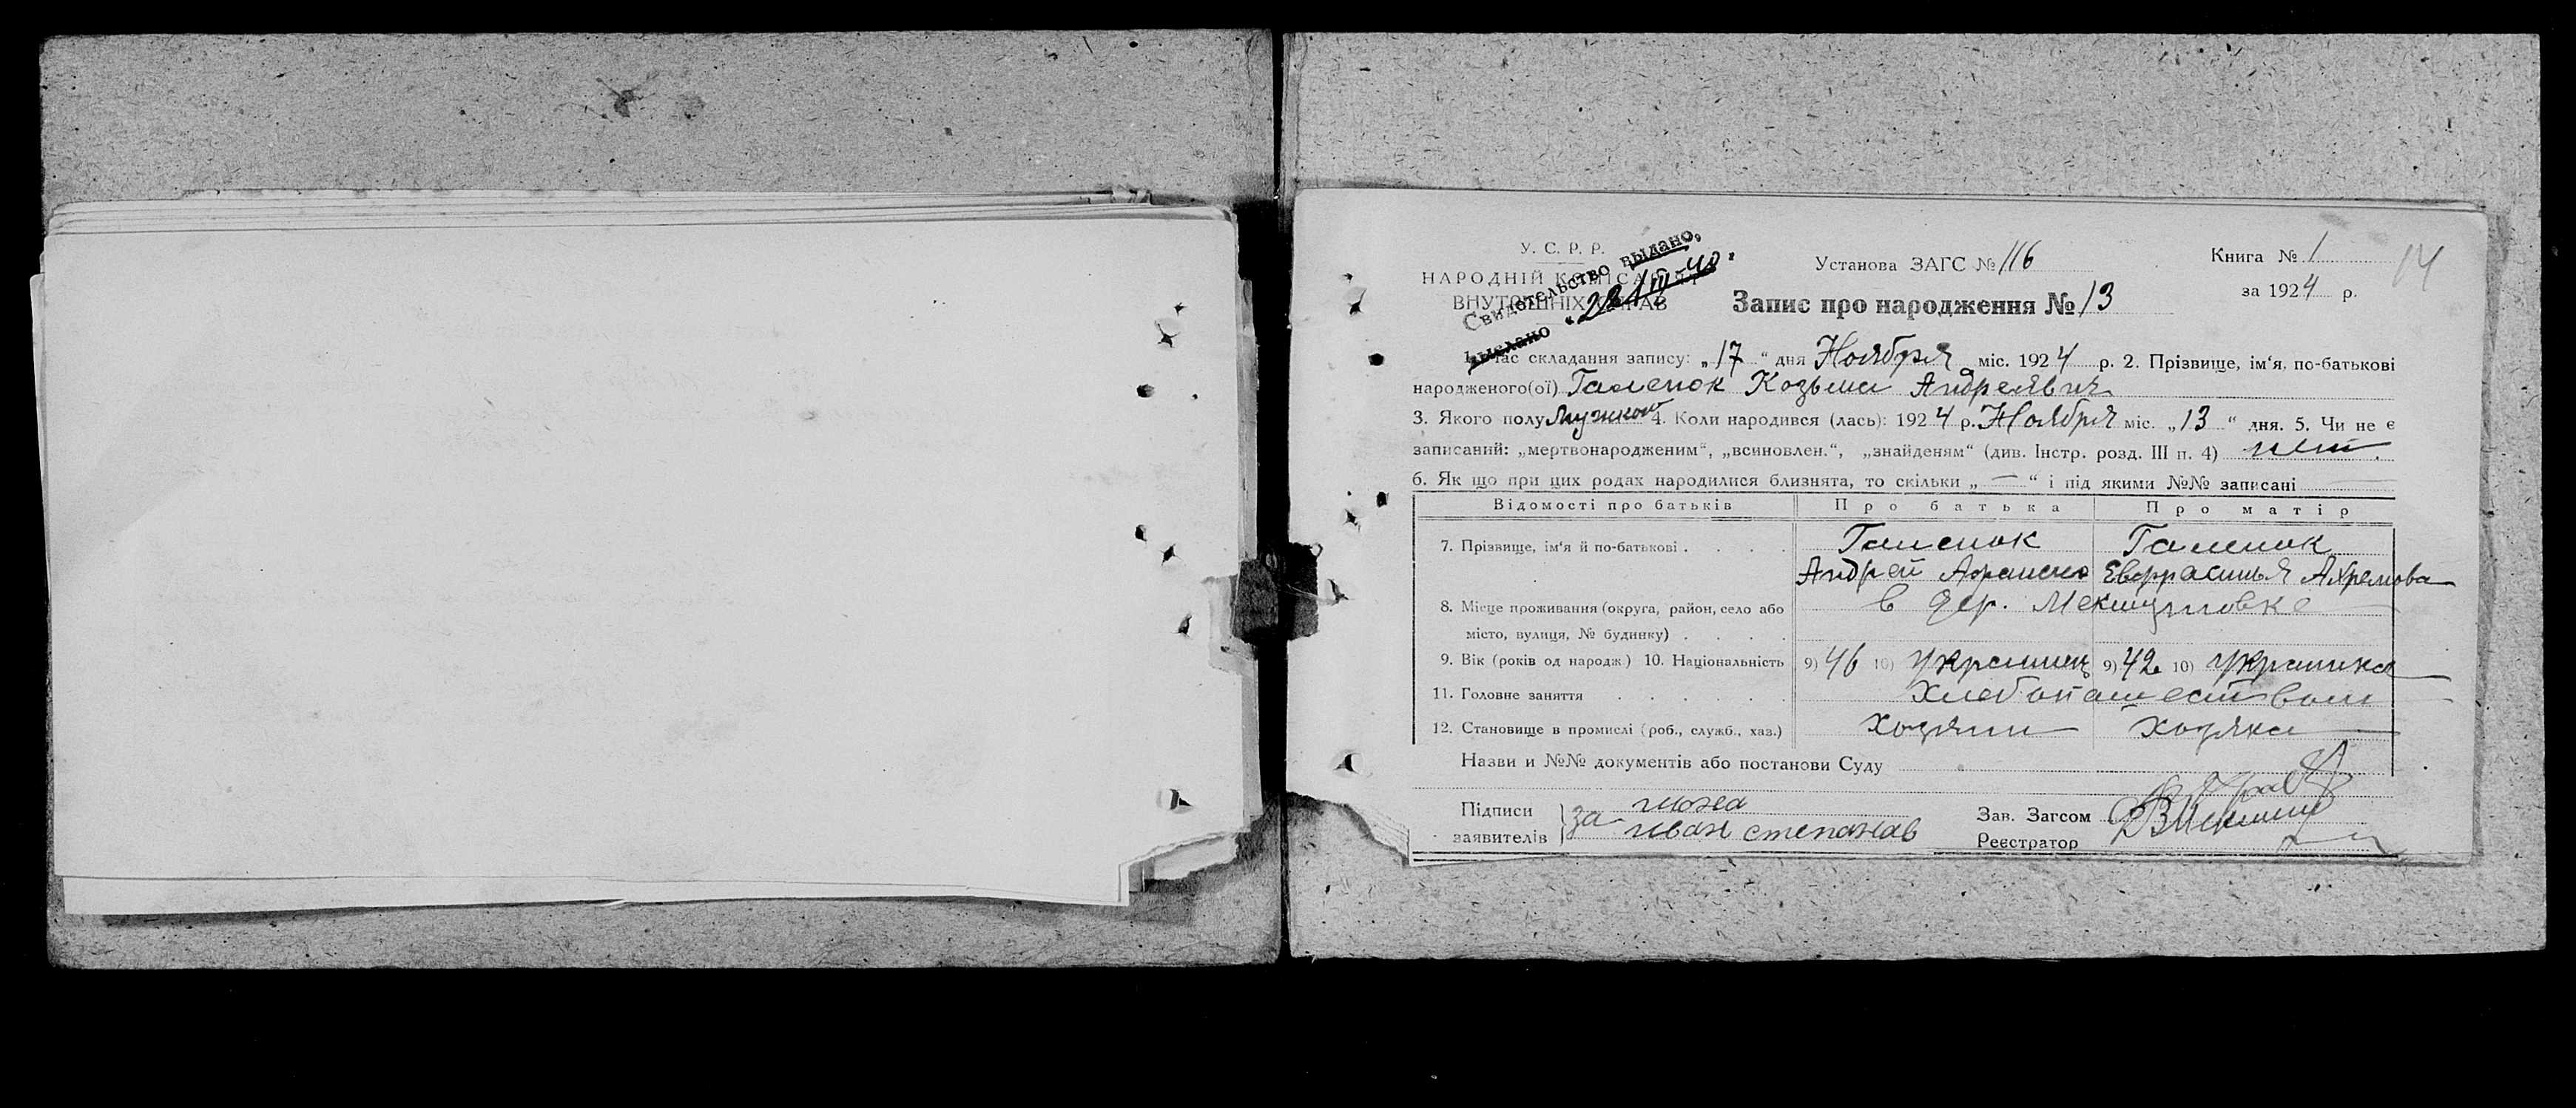 У. С. Р. Р.
НАРОДНІЙ КОМІСАРІАТ
ВНУТРІШНІХ СПРАВ
Свидетельство выдано,
выслано „22/IV-40.
Установа ЗАГС № 116
Книга № 1
14
за 1924 р.
Запис про народження № 13
1. Час складання запису: „17“ дня Ноября міс. 1924 р. 2. Прізвище, ім‘я, по-батькові
народженого(ої) Гапенок Козьма Андреявич
3. Якого полу Мужкой 4. Коли народився (лась): 1924 р. Ноября міс. „13“ дня. 5. Чи не є
записаний: „мертвонародженим“, „всиновлен.“, „знайденям“ (див. Інстр. розд. III п. 4) нет.
6. Як що при цих родах народилися близнята, то скільки „—“ і під якими №№ записані
Відомості про батьків Про батька Про матір
7. Прізвище, ім‘я й по-батькові . . . . Гапенок Гапенок
Андрей Еврасинья Ахремова
8. Місце проживання (округа, район, село або в дер.
місто, вулиця, № будинку) . . . .
9. Вік (років од народж.) 10. Національність 9) 46 10) Украинец 9) 42 10) Украинка
11. Головне заняття . . . . . Хлебопашеством
12. Становище в промислі (роб., служб., хаз.) хозяин хозяка
Назви и №№ документів або постанови Суду
Підписи
заявителів } за
иван степанав
Зав. Загсом
Реєстратор